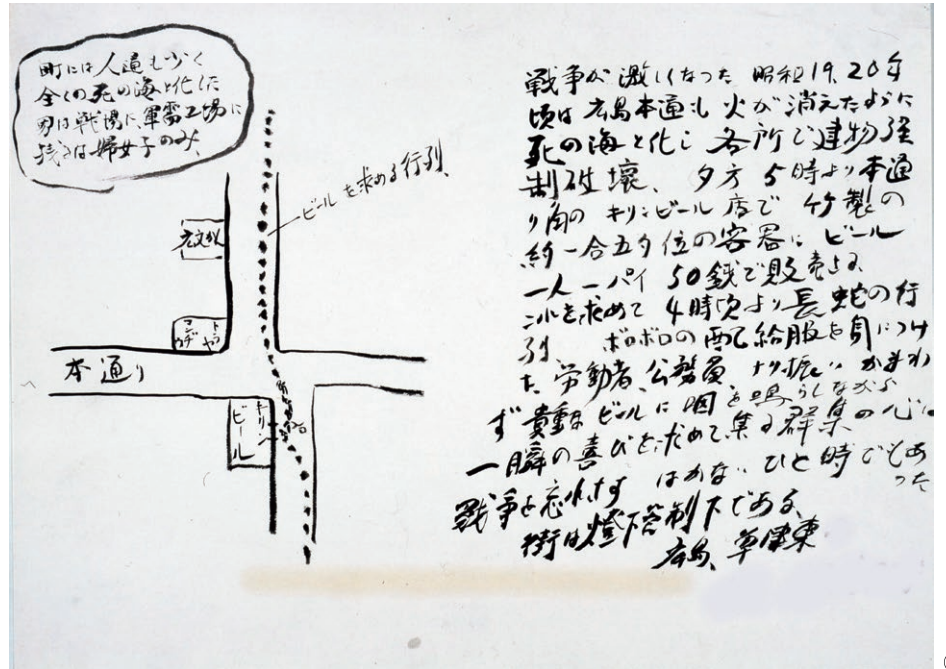 町には人通も少く
全くの死の海と化した
男は戦場に、軍需工場に
残るは婦女子のみ、
ビールを求める行列、
本通り
キリン
ビール
戦争が激しくなった 昭和19.20年
頃は広島本通も 火が消えたように
死の海と化し 各所で建物強
制破壊、夕方5時より本通
り角の キリンビール店で 竹製の
約一合五夕位の容器に ビール
一人一パイ 50銭で販売する、
これを求めて 4時頃より長蛇の行
列、ボロボロの配給服を身につけ
た、労働者、公務員、なり振いかまわ
ず貴重なビールに咽を鳴らしながら
一瞬の喜びを求めて、集る群集の心に
戦争を忘れさす はかないひと時でもあ
った
街は燈下管制下である、
広島、草津東